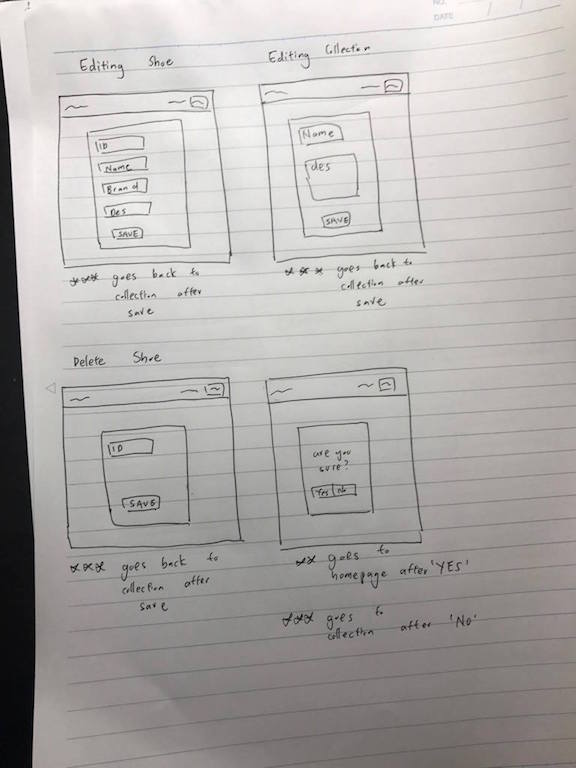 NO.
DATE
Editing Shoe
ID
Name
Brand
Des
SAVE
*** goes back to
collection after
save
Editing Collection
Name
des
SAVE
*** goes back to
collection after
save
Delete Shoe
ID
SAVE
*** goes back to
collection after
save
are you
sure?
Yes No
** goes to
homepage after 'YES'
*** goes to
collection after 'No'